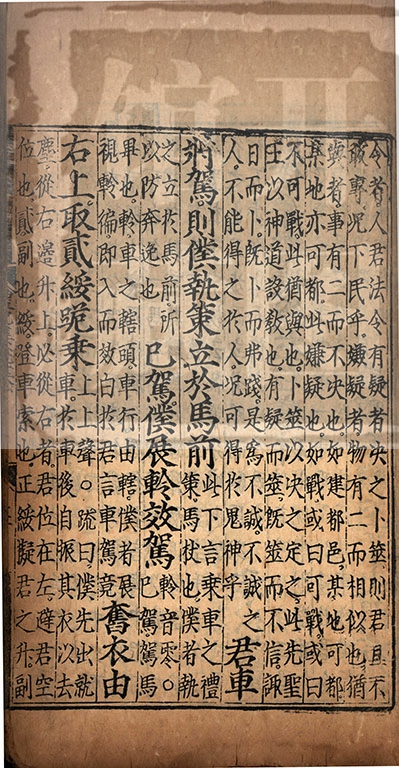 令者人君法令有疑者決之卜筮則君且不
敢專況下民乎嫌疑者物有二而相似也猶
與者事有二而不決也如建都邑某地可都
某地亦可都此嫌疑也如戰或曰可戰或曰
不可戰此猶與也卜筮以決之定之此先聖
王以神道設敎也有疑而筮旣筮而不信諏
日而卜旣卜而弗踐是爲不誠不誠之
人不能得之於人況可得於鬼神乎
君車
將駕則僕執策立於馬前
此下言乘車之禮
策馬杖也僕者執
之立於馬前所
以防奔逸也
已駕僕展軨效駕
軨音零○
已駕駕馬
畢也軨車之轄頭車行由轄僕者展
視軨徧即入而效白於君言車駕竟
奮衣由
右上取貳綏跪乘
上上聲○疏曰僕先出就
車於車後自振其衣以去
塵從右邊升上必從右者君位在左避君空
位也貳副也綏登車索也正綏擬君之升副